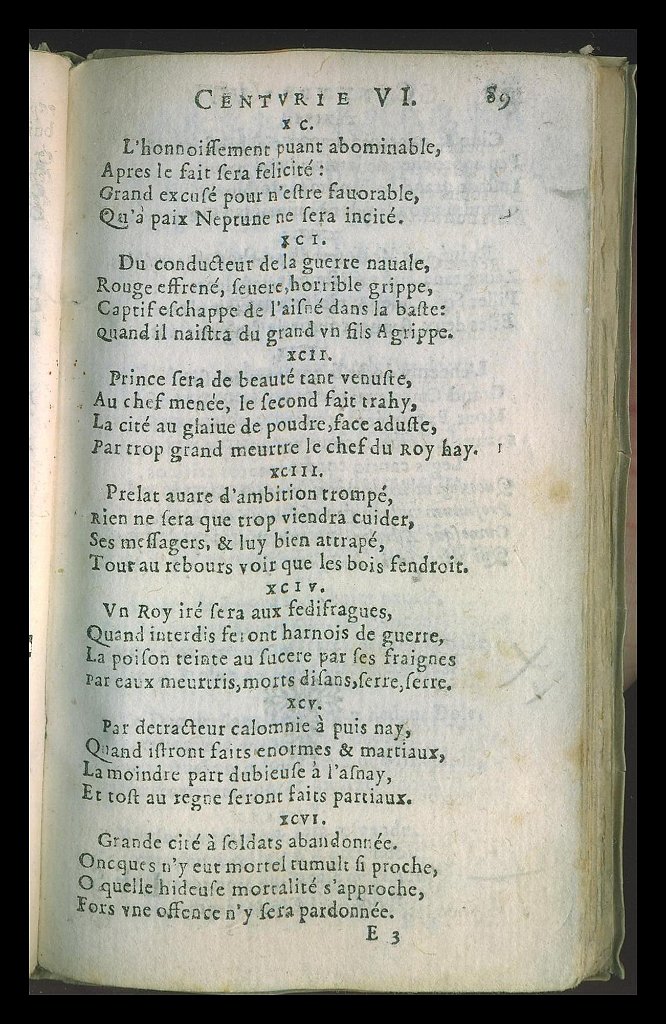 CENTVRIE VI. 89
XC.
L'honnoiſſement puant abominable,
Apres le fait ſera felicité :
Grand excuſé pour n'eſtre fauorable,
Qu'à paix Neptune ne ſera incité.
XCI.
Du conducteur de la guerre nauale,
Rouge effrené, ſeuere, horrible grippe,
Captif eſchappe de l'aiſné dans la baſte:
Quand il naiſtra du grand vn fils Agrippe.
XCII.
Prince ſera de beauté tant venuſte,
Au chef menée, le ſecond fait trahy,
La cité au glaiue de poudre, face aduſte,
Par trop grand meurtre le chef du Roy hay.
XCIII.
Prelat auare d'ambition trompé,
Rien ne ſera que trop viendra cuider,
Ses meſſagers, & luy bien attrapé,
Tout au rebours voir que les bois fendroit.
XCIV.
Vn Roy iré ſera aux fedifragues,
Quand interdis feront harnois de guerre,
La poiſon teinte au ſuccre par ſes fraignes
Par eaux meurtris, morts diſans, ſerre, ſerre.
XCV.
Par detracteur calomnie à puis nay,
Quand iſtront faits enormes & martiaux,
La moindre part dubieuſe à l'aſnay,
Et toſt au regne ſeront faits partiaux.
XCVI.
Grande cité à ſoldats abandonnée.
Oncques n'y eut mortel tumult ſi proche,
O quelle hideuſe mortalité s'approche,
Fors vne offence n'y ſera pardonnée.
E 3